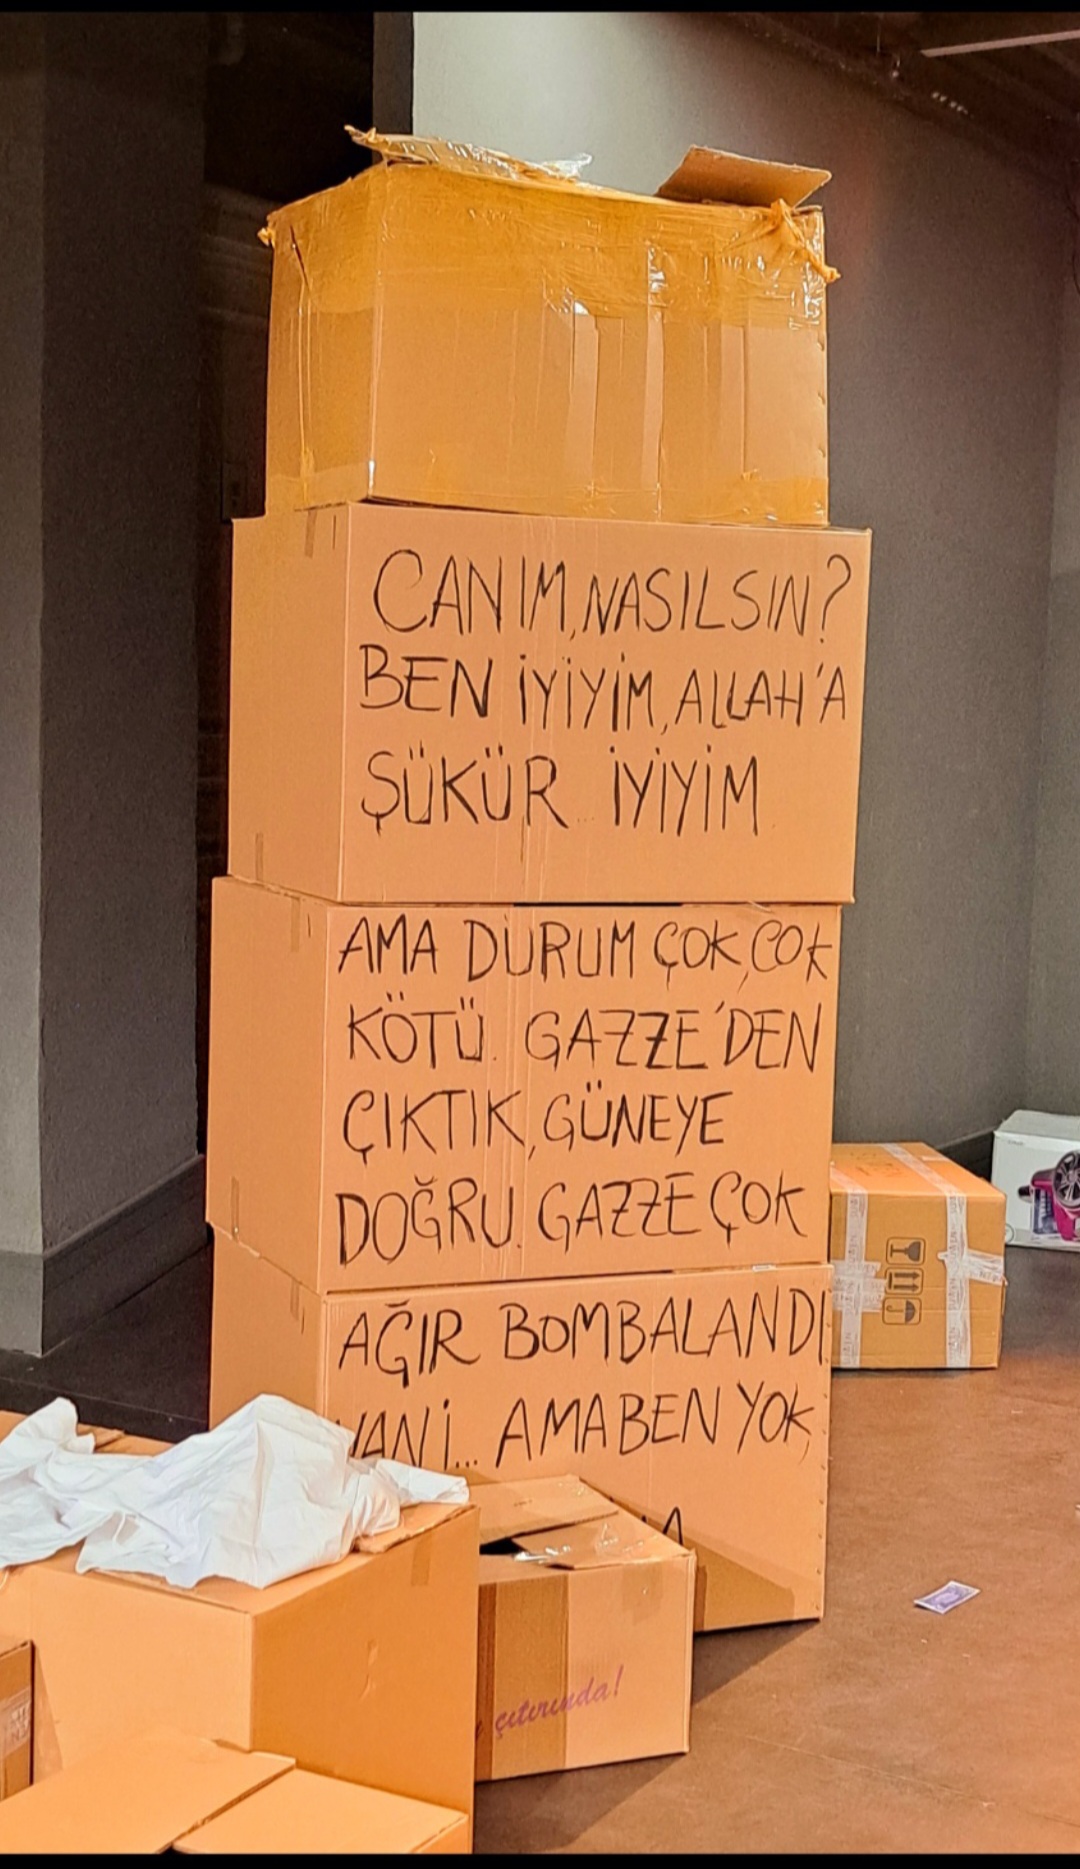 CANIM, NASILSIN?
BEN İYİYİM, ALLAH'A
ŞÜKÜR İYİYİM
AMA DURUM ÇOK, ÇOK
KÖTÜ. GAZZE'DEN
ÇIKTIK, GÜNEYE
DOĞRU. GAZZE ÇOK
AĞIR BOMBALANDI
YANİ... AMA BEN YOK,
çıtırında!